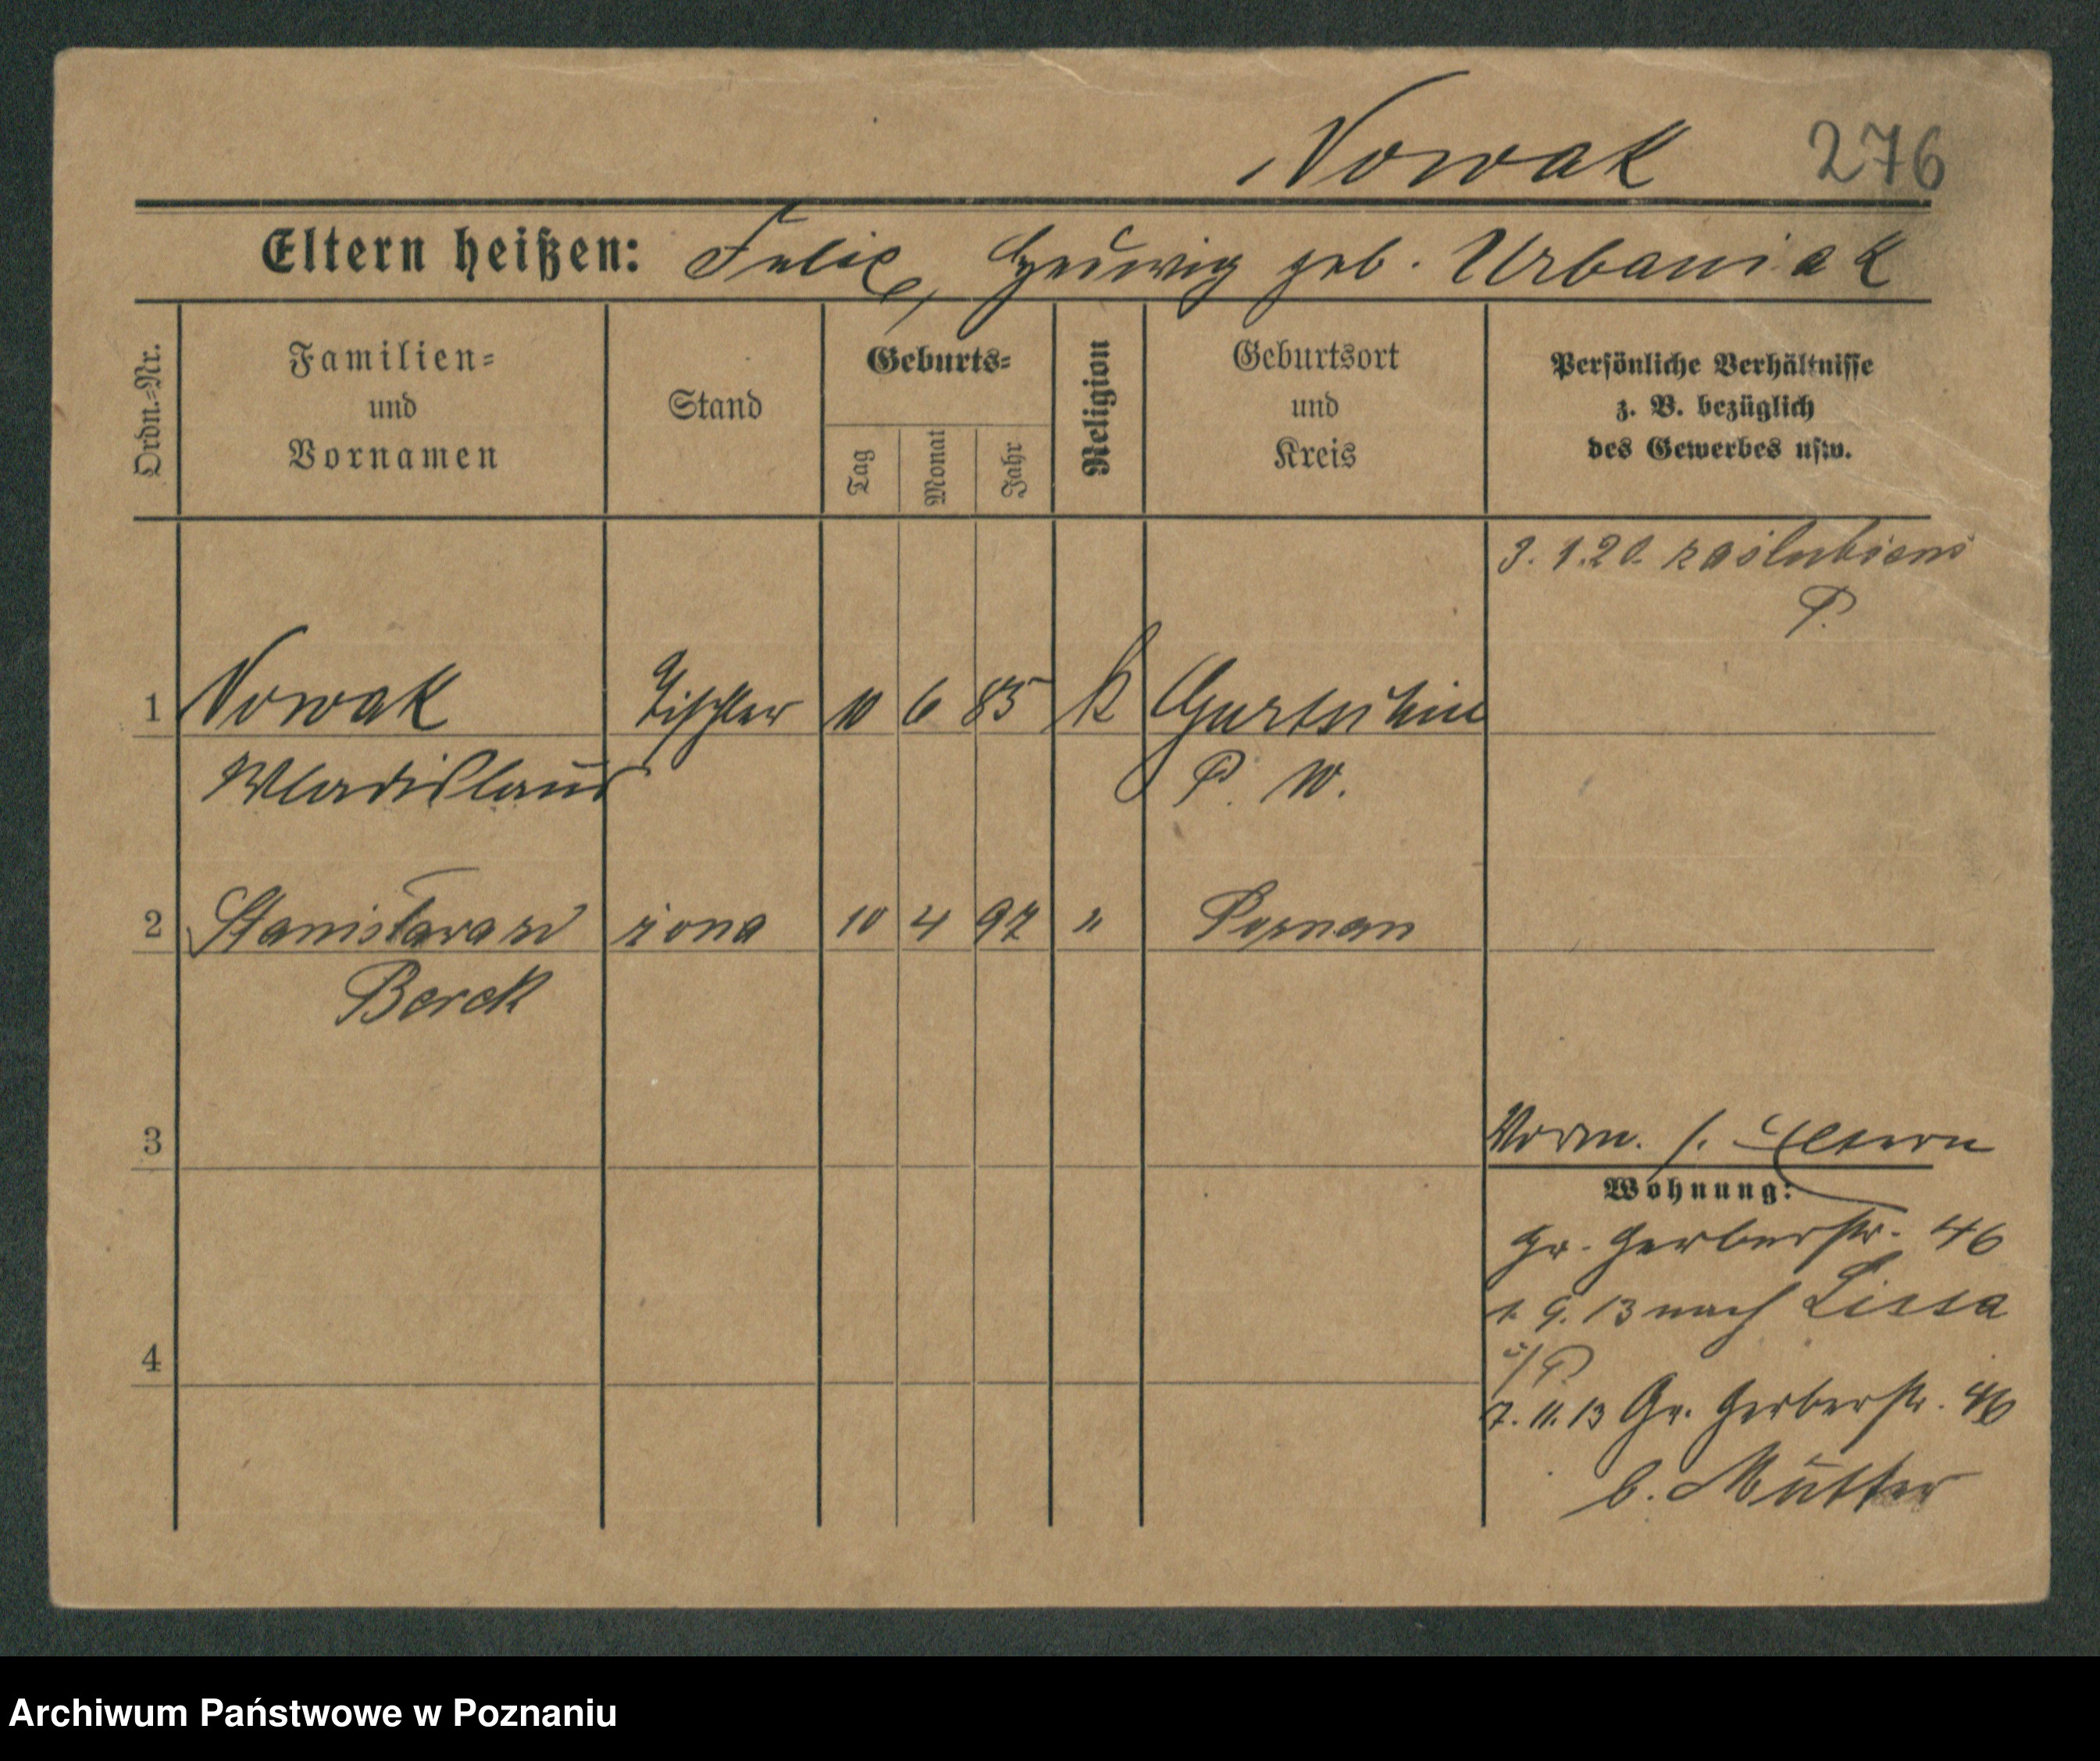 Nowak 276
Eltern heißen: Felix, Hedwig geb. Urbaniak
Ordn.=Nr.
Familien=
und
Vornamen
Stand
Geburts=
Tag
Monat
Jahr
Religion
Geburtsort
und
Kreis
Persönliche Verhältnisse
z. B. bezüglich
des Gewerbes usw.
3. 1.20. zaślubieni
P.
1 Nowak Tischler 10 6 85 k
Wladislaus P. W.
2 Stanisława żona 10 4 97 " Poznan
Berek
3
Vorm. s. Eltern
Wohnung:
Gr. Gerberstr. 46
1. 9. 13 nach Lissa
i/P
4
7. 11. 13 Gr. Gerberstr. 46
b. Mutter
Archiwum Państwowe w Poznaniu